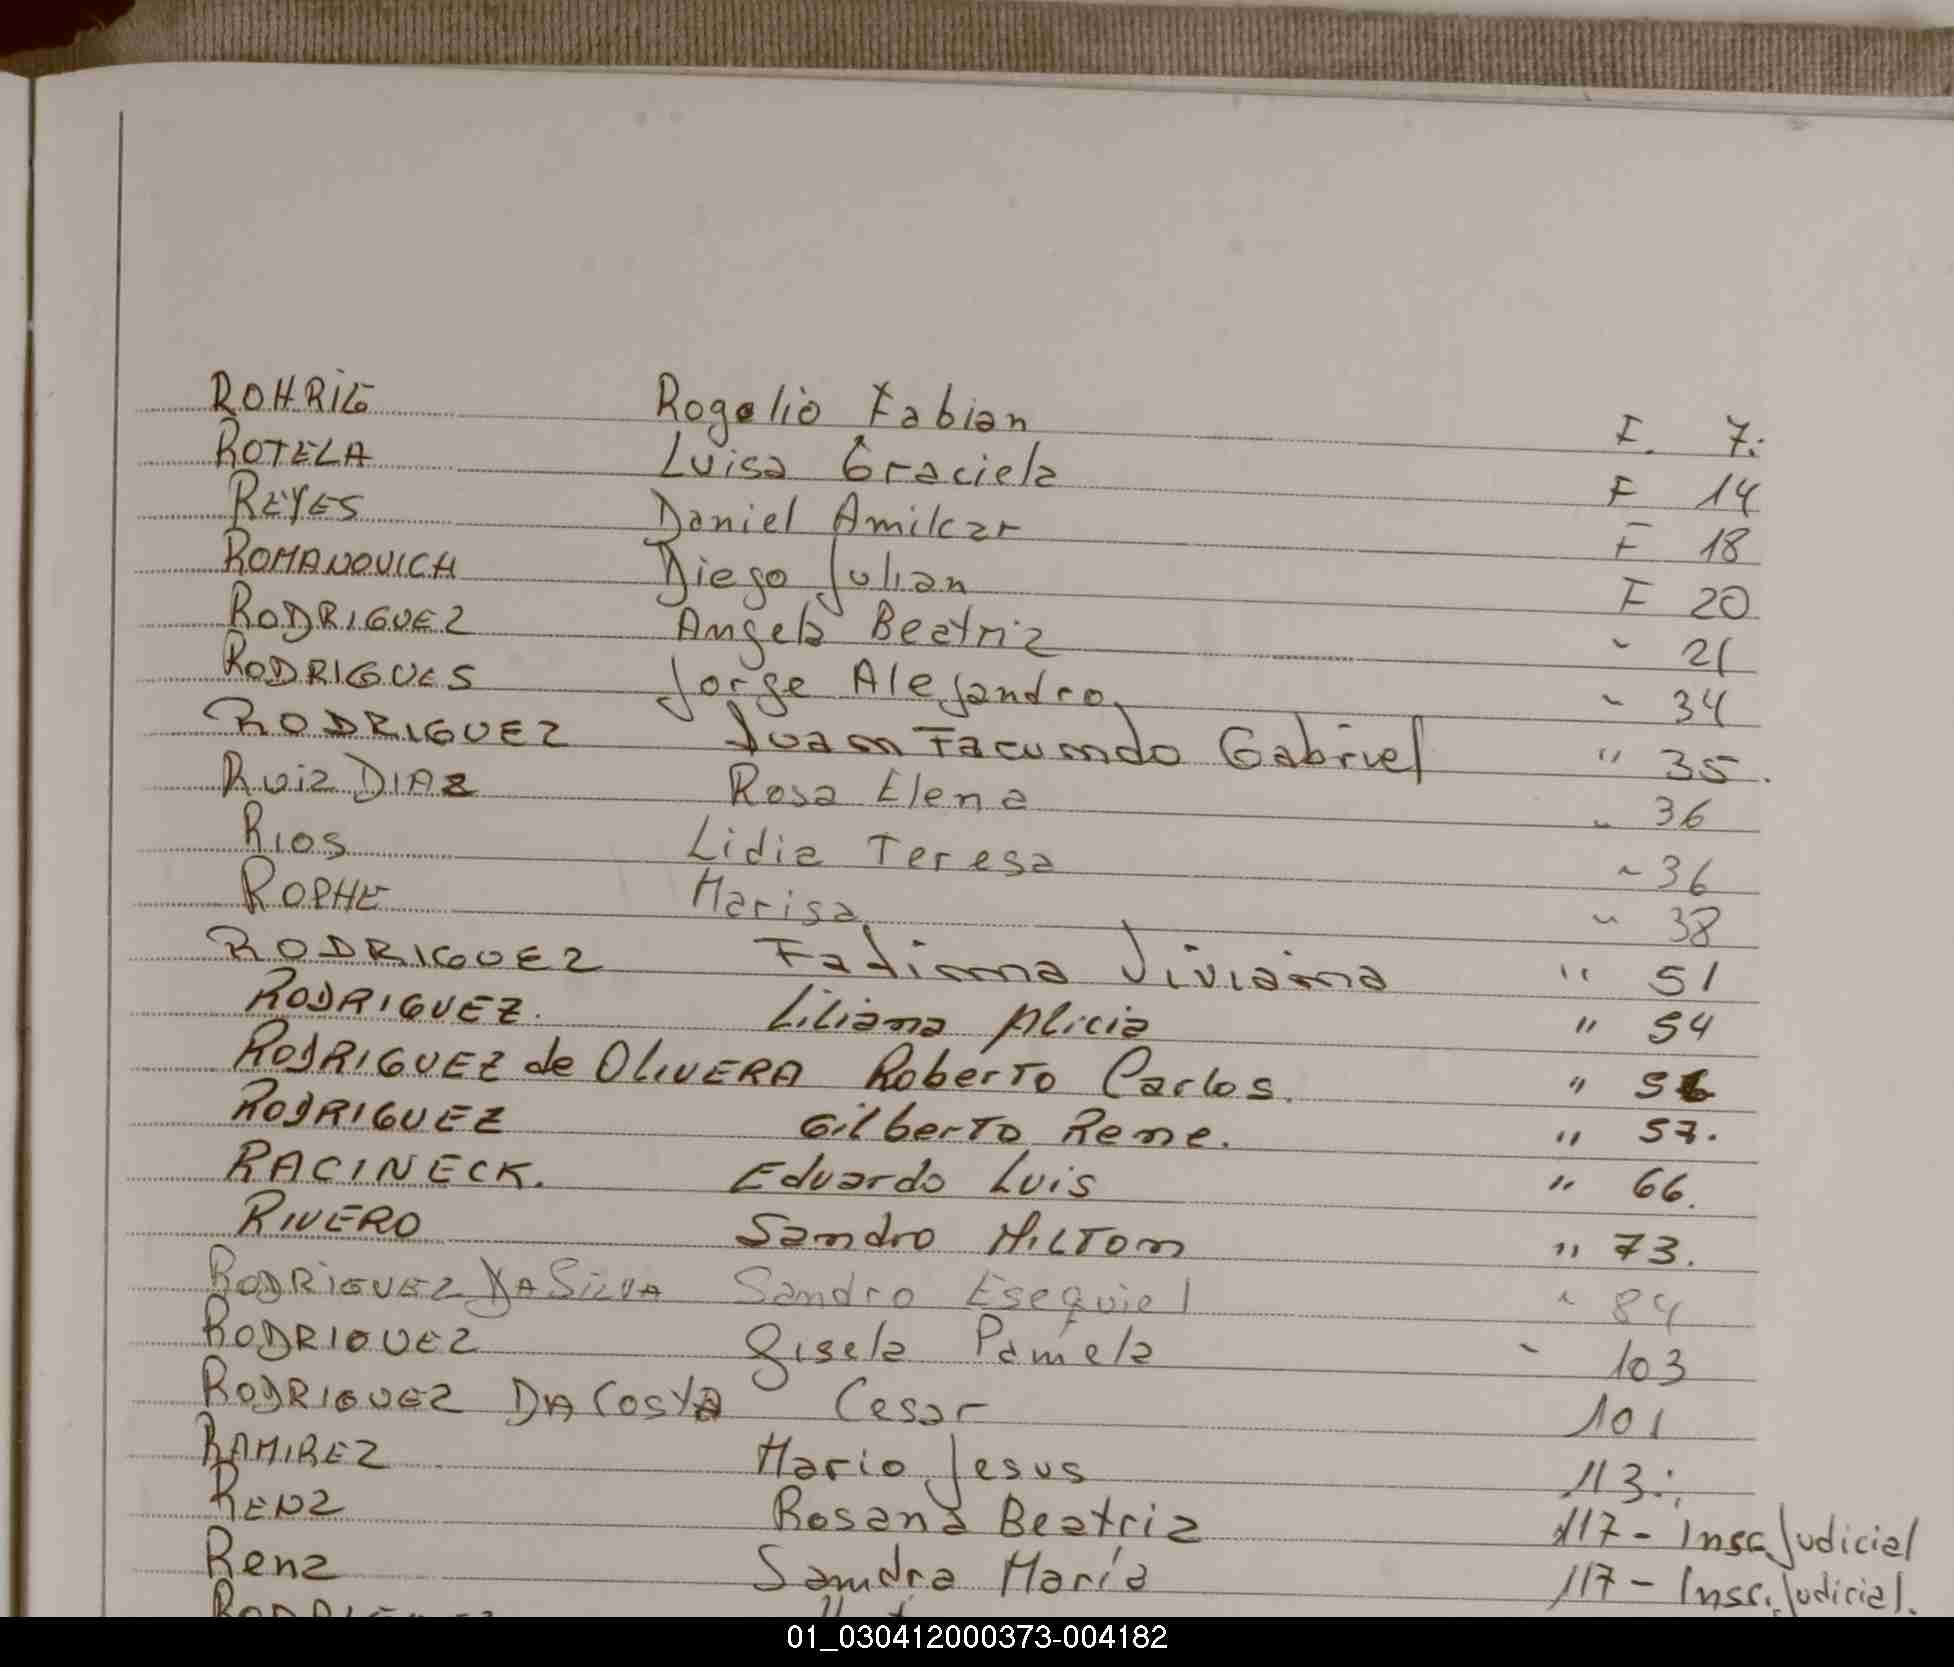 ROHRIG Rogelio Fabian F. 7.
ROTELA Luisa Graciela F 14
REYES Daniel Amilcar F 18
ROMANOVICH Diego Julian F 20
RODRIGUEZ Angela Beatriz " 21
RODRIGUES Jorge Alejandro " 34
RODRIGUEZ Juan Facundo Gabriel " 35.
RUIZ DIAZ Rosa Elena " 36
RIOS Lidia Teresa " 36
ROPHE Marisa " 38
RODRIGUEZ Viviana " 51
RODRIGUEZ. Liliana Alicia " 54
RODRIGUEZ de OLIVERA Roberto Carlos. " 56
RODRIGUEZ Gilberto Rene. " 57.
RACINECK. Eduardo Luis " 66.
RIVERO Sandro MILTON " 73.
RODRIGUEZ DA SILVA Sandro Esequiel " 84
RODRIGUEZ Gisela Pamela " 103
RODRIGUEZ DA COSTA Cesar 101
RAMIREZ Mario Jesus 113.
RENZ Rosana Beatriz 117 - Insc. Judicial
Renz Sandra María 117 - Insc. Judicial.
01_030412000373-004182